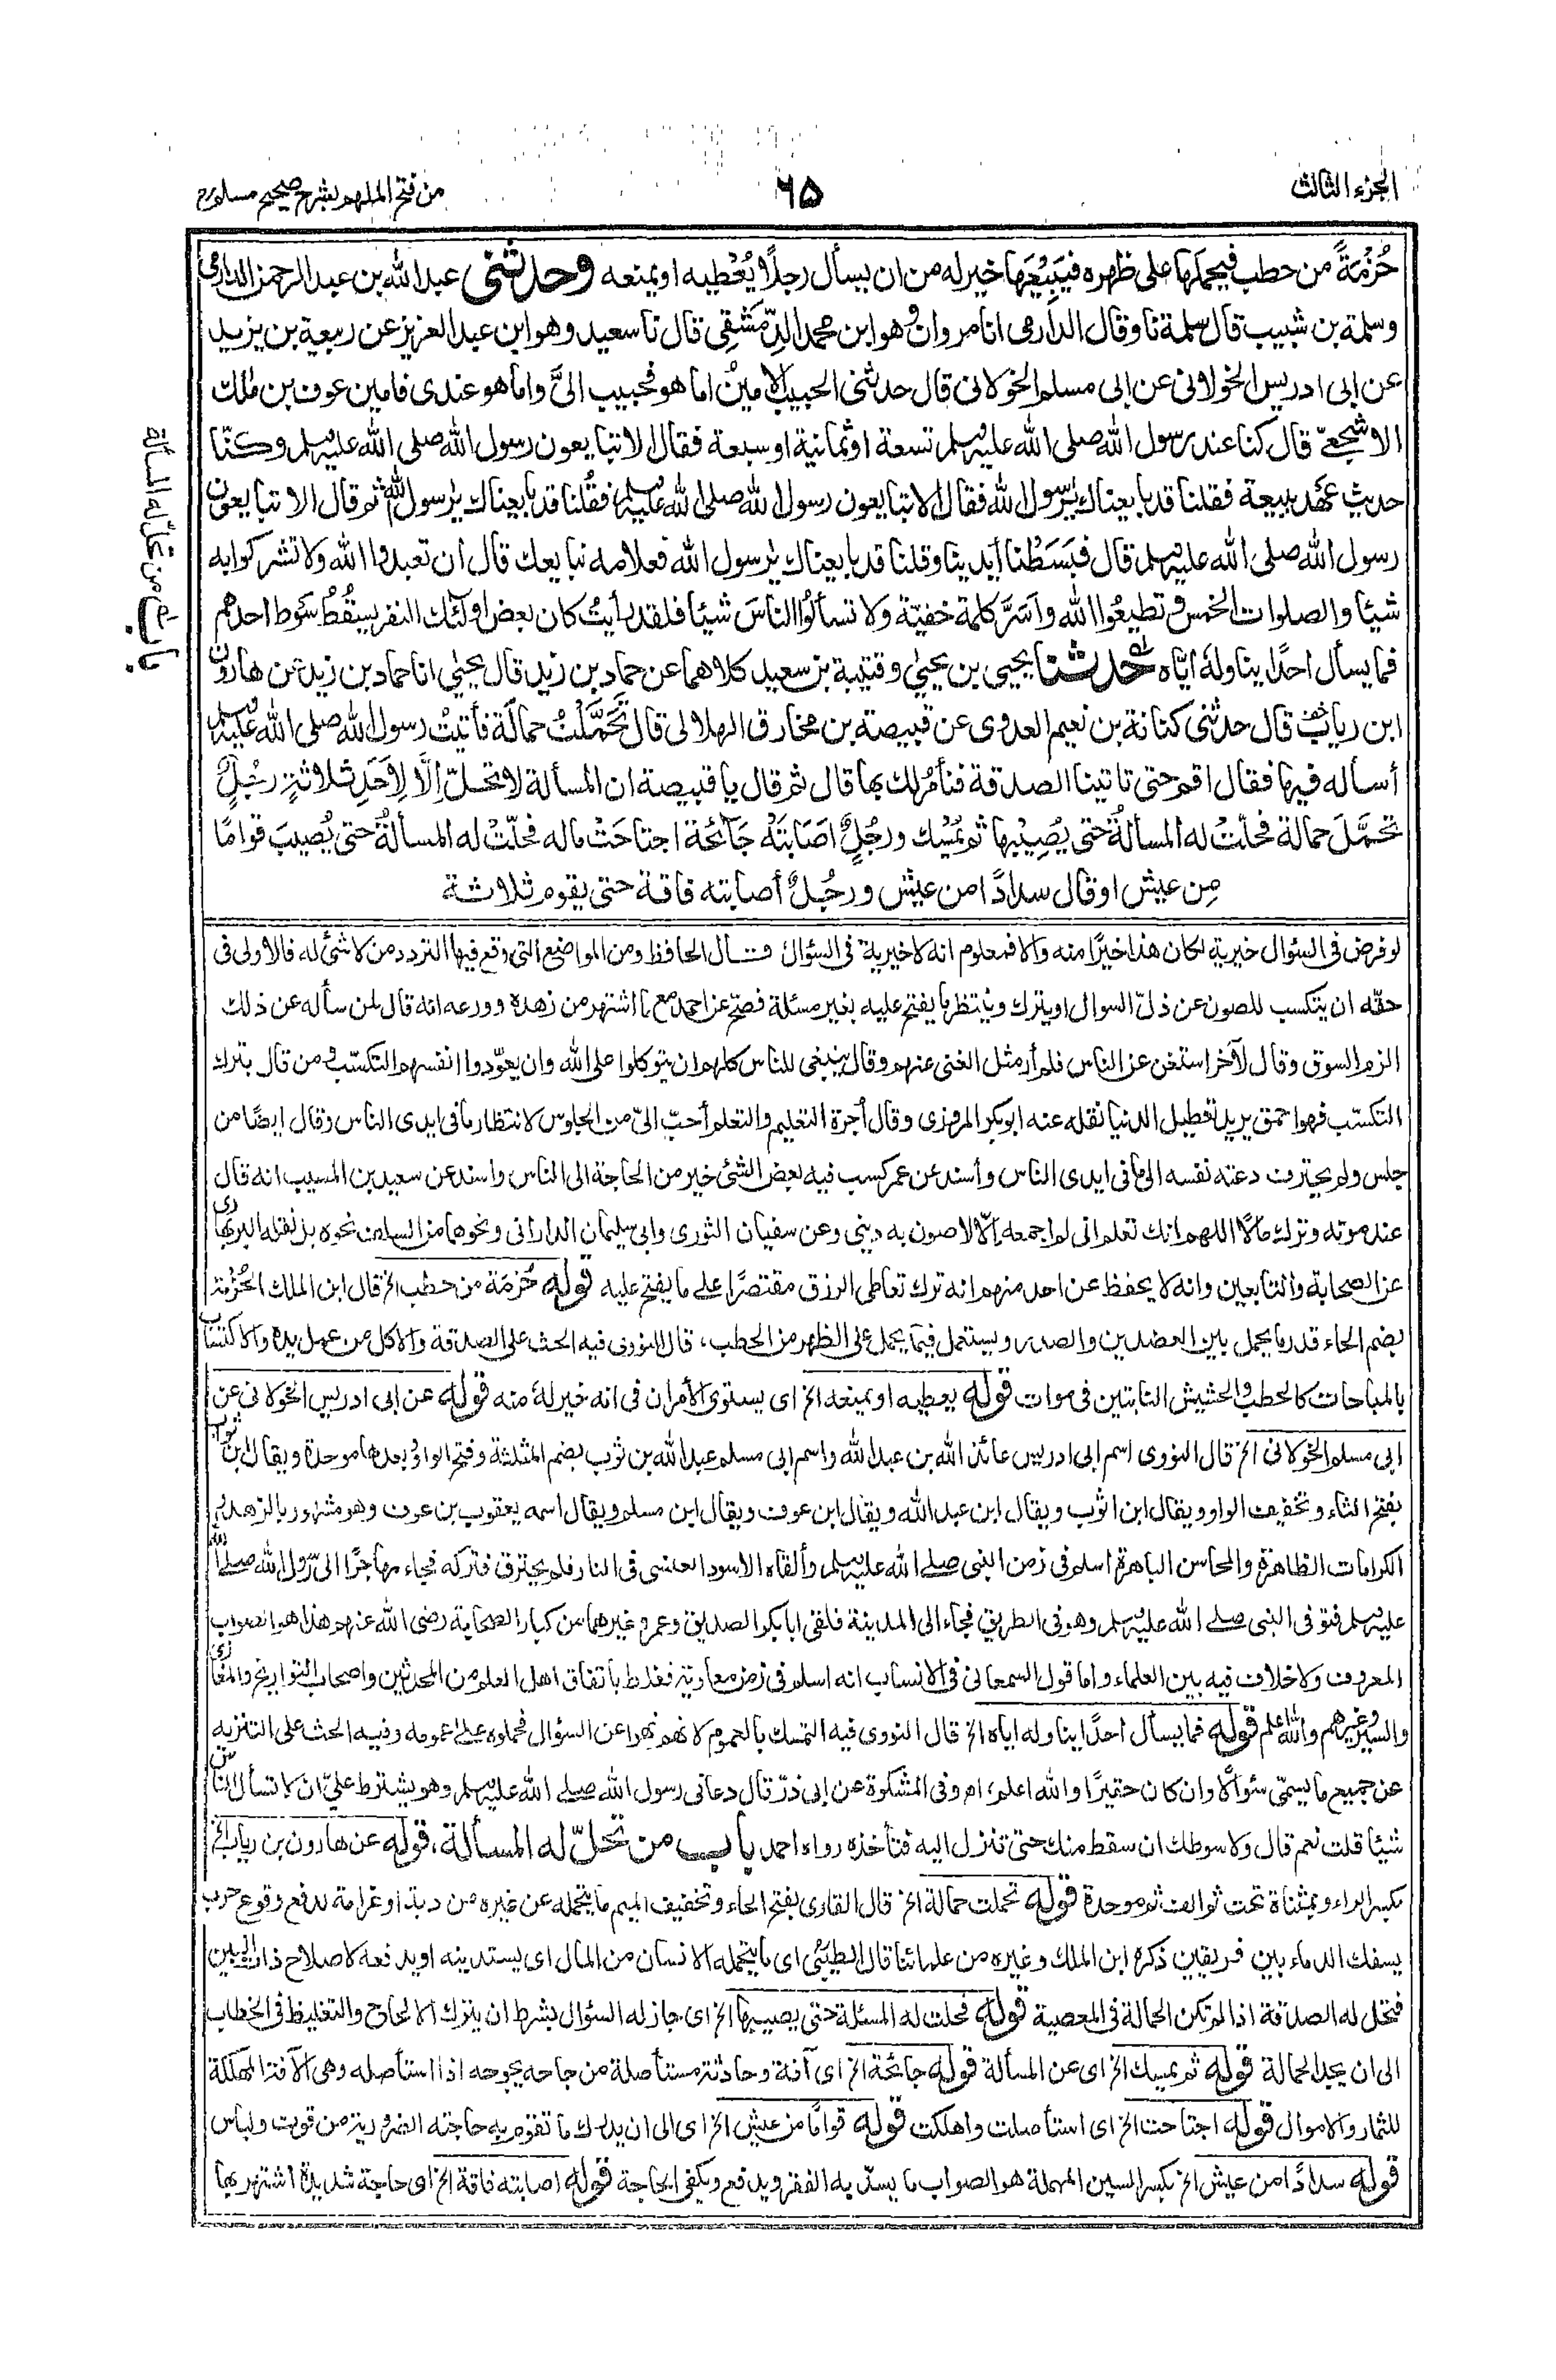 الجزء الثالث
٦٥
من فتح الملهم بشرح صحيح مسلم
حُزْمَةً من حطب فيحملها على ظهره فيَبِيْعَها خير له من ان يسأل رجلًا يُعْطِيه او يمنعه وحدثنى عبد الله بن عبد الرحمن الدارمى
وسلمة بن شبيب قال سلمة نا وقال الدارمى انا مروان وهو ابن محمد الدِّمَشْقِى قال نا سعيد وهو ابن عبد العزيز عن ربيعة بن يزيد
عن ابى ادريس الخولانى عن ابى مسلم الخولانى قال حدثنى الحبيب الامينُ اما هو فحبيب الىَّ واما هو عندى فامين عوف بن مٰلك
الاشجعىّ قال كنا عند رسول الله صلى الله عليه وسلم تسعة او ثمانية او سبعة فقال الا تبايعون رسول الله صلى الله عليه وسلم وكنّا
حديث عَهْد ببيعة فقلنا قد بايعناك يٰرسول الله فقال الا تبايعون رسول الله صلى الله عليه وسلم فقُلنا قد بايعناك يٰرسول الله ثم قال الا تبايعون
رسول الله صلى الله عليه وسلم قال فبَسَطْنا اَيديَنا وقلنا قد بايعناك يٰرسول الله فعلامه نبايعك قال ان تعبدوا الله ولا تشركوا به
شيئا والصلوات الخمس وتطيعُوا الله واَسَرَّ كلمة خفيّة ولا تسألُوا الناسَ شيئا فلقد رأيتُ كان بعض اولٰئك النفر يسقُطُ سَوط احدهم
فما يسأل احدًا يناولهُ ايّاه حدثنا يحيى بن يحيٰي وقتيبة بن سعيد كلاهما عن حماد بن زيد قال يحيٰي انا حماد بن زيد عن هارون
ابن رياب قال حدثنى كنانة بن نعيم العدوى عن قبيصة بن مخارق الهلالى قال تَحَمَّلْتُ حمالَة فأتيتُ رسول الله صلى الله عليه وسلم
أسأله فيها فقال اقم حتى تاتينا الصدقة فنأمُرَ لك بها قال ثم قال يا قبيصة ان المسألة لا تحلّ اِلَّا لِاَحَدِ ثلاثةٍ رجُلٌ
تحمَّلَ حمالة فحلّتْ له المسألةُ حتى يُصِيْبها ثم يُمْسِك ورجُلٌ اَصَابَتْهُ جَآئحة اجتاحَتْ ماله فحلّتْ له المسألةُ حتى يُصيبَ قوامًا
مِن عيش او قال سدادًا من عيش ورجُلٌ أصابته فاقة حتى يقوم ثلاثة
باب من تحلّ له المسألة
لو فرض فى السؤال خيرية لكان هذا خيرًا منه والا فمعلوم انه لا خيرية فى السؤال قال الحافظ ومن المواضع التى وقع فيها التردد من لا شئ له فالأولى فى
حقّه ان يتكسب للصون عن ذلّ السوال او يترك وينتظر ما يفتح عليه بغير مسئلة فصحّ عن احمد مع ما اشتهر من زهده وورعه انه قال لمن سأله عن ذلك
الزم السوق وقال لآخر استغن عن الناس فلم أر مثل الغنى عنهم وقال ينبغى للناس كلهم ان يتوكلوا على الله وان يعوّدوا انفسهم التكسّب ومن قال بترك
التكسّب فهو احمق يريد تعطيل الدنيا نقله عنه ابو بكر المروزى وقال أجرة التعليم والتعلم أحبّ الىّ من الجلوس لانتظار ما فى ايدى الناس وقال ايضًا من
جلس ولم يحترف دعته نفسه الى ما فى ايدى الناس وأسند عن عمر كسب فيه بعض الشئ خير من الحاجة الى الناس واسند عن سعيد بن المسيب انه قال
عند موته وترك مالًا اللهم انك تعلم انى لم اجمعه الّا لاصون به دينى وعن سفيان الثورى وابى سليمان الدارانى ونحوهما من السلف نحوه بل نقله البربهارى
عن الصحابة والتابعين وانه لا يحفظ عن احد منهم انه ترك تعاطى الرزق مقتصرًا على ما يفتح عليه قوله حُزمَة من حطب الخ قال ابن الملك الحُزْمَة
بضم الحاء قدر ما يحمل بين العضدين والصدر ويستعمل فيما يحمل على الظهر من الحطب، قال النووى فيه الحث على الصدقة والاكل من عمل يده والاكتساب
بالمباحات كالحطب والحشيش النابتين فى موات قوله يعطيه او يمنعه الخ اى يستوى الأمران فى انه خير لهٗ منه قوله عن ابى ادريس الخولانى عن
ابى مسلم الخولانى الخ قال النووى اسم ابى ادريس عائذ الله بن عبد الله واسم ابى مسلم عبد الله بن ثوب بضم المثلثة وفتح الواو وبعدها موحدة ويقال ابن ثواب
بفتح الثاء وتخفيف الواو ويقال ابن اثوب ويقال ابن عبد الله ويقال ابن عوف ويقال ابن مسلم ويقال اسمه يعقوب بن عوف وهو مشهور بالزهد و
الكرامات الظاهرة والمحاسن الباهرة اسلم فى زمن النبى صلى الله عليه وسلم وألقاه الاسود العنسى فى النار فلم يحترق فتركه فجاء مهاجرًا الى رسول الله صلى الله
عليه وسلم فتوفى النبى صلى الله عليه وسلم وهو فى الطريق فجاء الى المدينة فلقى ابا بكر الصديق وعمر وغيرهما من كبار الصحابة رضى الله عنهم هذا هو الصواب
المعروف ولا خلاف فيه بين العلماء واما قول السمعانى فى الانساب انه اسلم فى زمن معاوية فغلط باتفاق اهل العلم من المحدثين واصحاب التواريخ والمغازى
والسير وغيرهم والله اعلم قوله فما يسأل احدًا يناوله اياه الخ قال النووى فيه التمسك بالعموم لانهم نهوا عن السؤال فحملوه على عمومه وفيه الحث على التنزيه
عن جميع ما يسمّى سؤالًا وان كان حقيرًا والله اعلم، اه وفى المشكوة عن ابى ذرّ قال دعانى رسول الله صلى الله عليه وسلم وهو يشترط علىّ ان لا تسأل الناس
شيئا قلت نعم قال ولا سوطك ان سقط منك حتى تنزل اليه فتأخذه رواه احمد باب من تحلّ له المسألة، قوله عن هارون بن رياب الخ
بكسر الراء وبمثناة تحت ثم الف ثم موحدة قوله تحملت حمالة الخ قال القارى بفتح الحاء وتخفيف الميم ما يتحمله عن غيره من دية او غرامة لدفع وقوع حرب
يسفك الدماء بين فريقين ذكره ابن الملك وغيره من علمائنا قال الطيبى اى ما يتحمله الانسان من المال اى يستدينه او يدفعه لاصلاح ذات البين
فتحل له الصدقة اذا لم تكن الحمالة فى المعصية قوله فحلت له المسئلة حتى يصيبها الخ اى جاز له السؤال بشرط ان يترك الالحاح والتغليظ فى الخطاب
الى ان يجد الحمالة قوله ثم يمسك الخ اى عن المسألة قوله جائحة الخ اى آفة وحادثة مستأصلة من جاحه يجوحه اذا استأصله وهى الآفة المهلكة
للثمار والاموال قوله اجتاحت الخ اى استأصلت واهلكت قوله قوامًا من عيش الخ اى الى ان يدرك ما تقوم به حاجته الضرورية من قوت ولباس
قوله سدادًا من عيش الخ بكسر السين المهملة هو الصواب ما يسدّ به الفقر ويدفع ويكفى الحاجة قوله اصابته فاقة الخ اى حاجة شديدة اشتهر بها